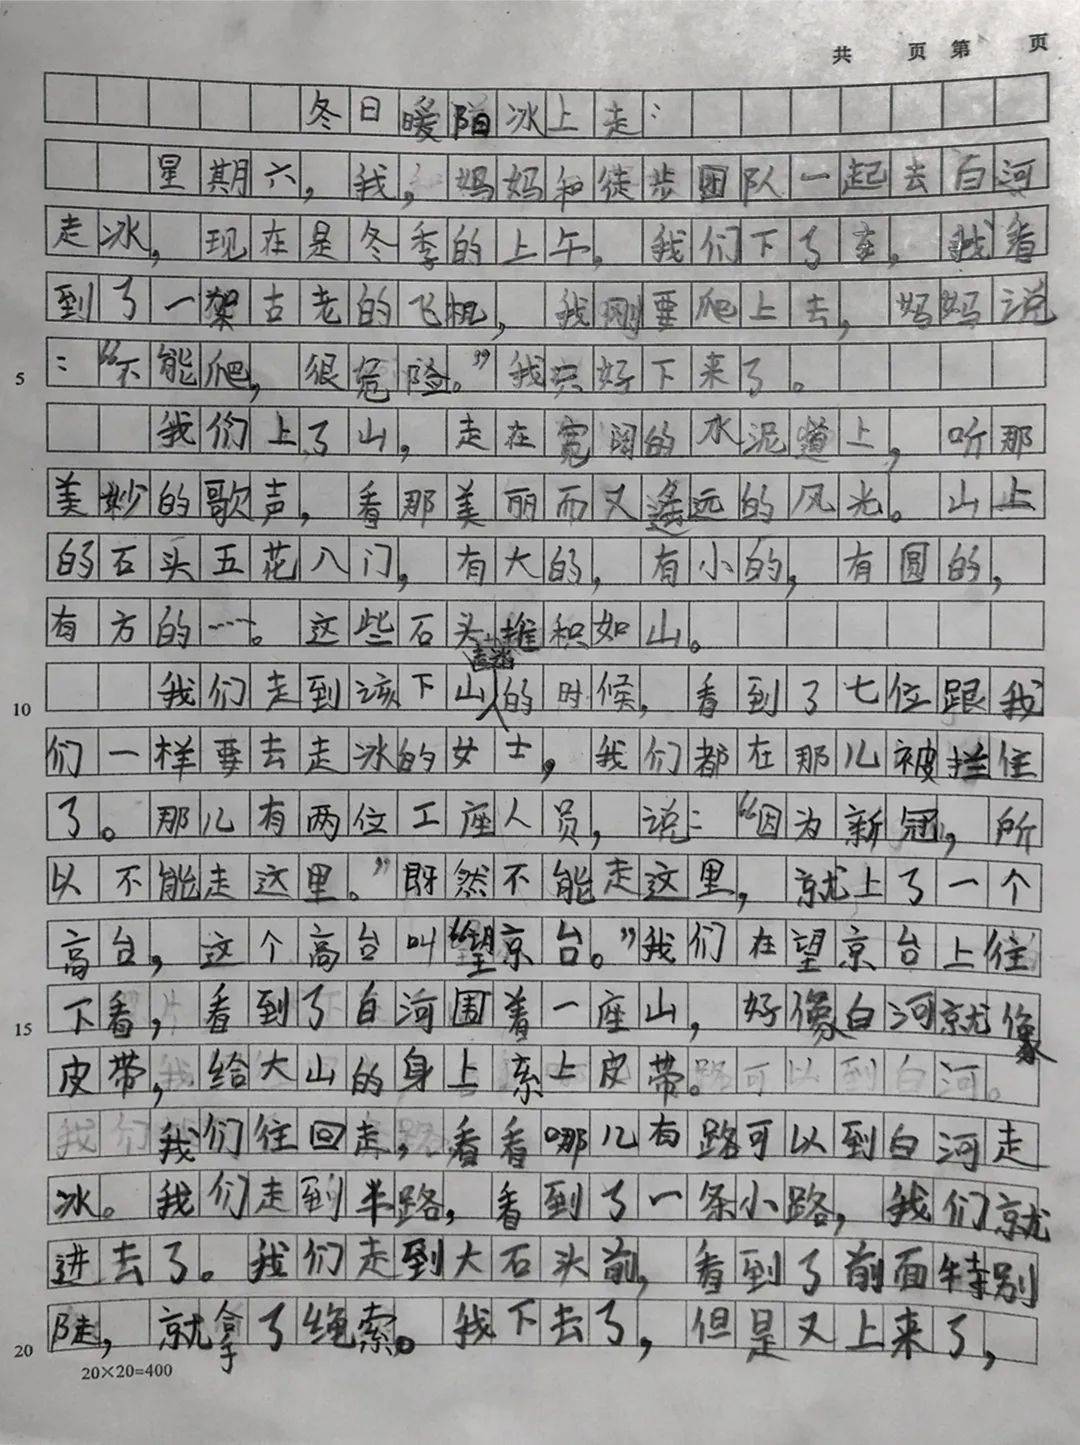 共 页 第 页
冬日暖陌冰上走:
星期六,我,妈妈和徒步团队一起去白河
走冰,现在是冬季的上午。我们下了车,我看
到了一架古老的飞机,我刚要爬上去,妈妈说
:“不能爬,很危险。”我只好下来了。
我们上了山,走在宽阔的水泥道上,听那
美妙的歌声,看那美丽而又遥远的风光。山上
的石头五花八门,有大的,有小的,有圆的,
5
有方的……。这些石头堆积如山。
我们走到该下山的时候,看到了七位跟我
10
们一样要去走冰的女士,我们都在那儿被拦住
了。那儿有两位工座人员,说:“因为新冠,所
以不能走这里。”既然不能走这里,就上了一个
高台,这个高台叫“望京台。”我们在望京台上往
下看,看到了白河围着一座山,好像白河就像
15
皮带,给大山的身上系上皮带。
我们往回走,看看哪儿有路可以到白河走
冰。我们走到半路,看到了一条小路,我们就
进去了。我们走到大石头前,看到了前面特别
陡,就拿了绳索。我下去了,但是又上来了,
20
20×20=400